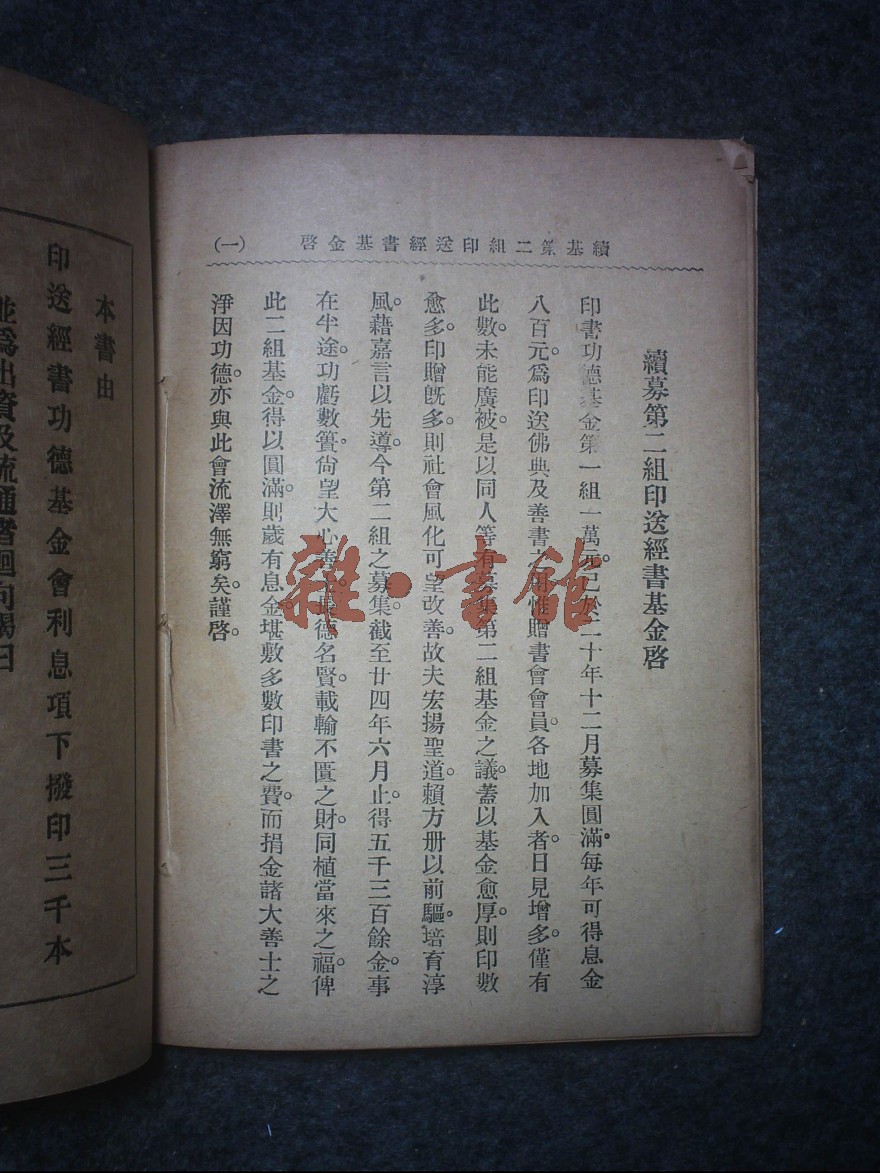 續基第二組印送經書基金啓
(一)
續募第二組印送經書基金啓
印書功德基金第一組一萬元。已於二十年十二月募集圓滿。每年可得息金
八百元。爲印送佛典及善書之用惟贈書會會員。各地加入者。日見增多。僅有
此數。未能廣被。是以同人等有募集第二組基金之議。蓋以基金愈厚。則印數
愈多。印贈旣多。則社會風化可望改善。故夫宏揚聖道。賴方册以前驅。培育淳
風。藉嘉言以先導。今第二組之募集。截至廿四年六月止。得五千三百餘金。事
在半途。功虧數簣。尙望大心善士。長德名賢。載輸不匱之財。同植當來之福。俾
此二組基金。得以圓滿。則歲有息金。堪敷多數印書之費。而捐金諸大善士之
淨因功德。亦與此會流澤無窮矣。謹啓。
本書由
印送經書功德基金會利息項下撥印三千本
並爲出資及流通者迴向偈曰
雜·書館